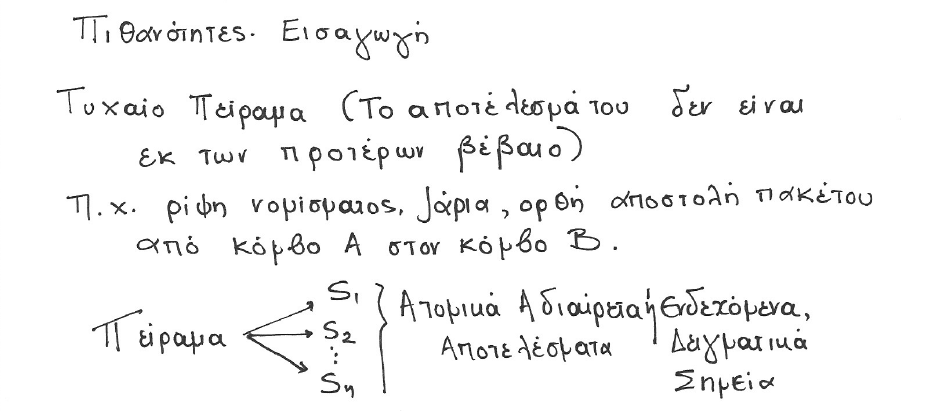 Πιθανότητες. Εισαγωγή
Τυχαίο Πείραμα (Το αποτέλεσμά του δεν είναι
εκ των προτέρων βέβαιο)
Π.χ. ρίψη νομίσματος, ζάρια, ορθή αποστολή πακέτου
από κόμβο Α στον κόμβο Β.
S1
Πείραμα S2
⋮
Sn
Ατομικά Αδιαίρετα ή Ενδεχόμενα,
Αποτελέσματα Δειγματικά
Σημεία